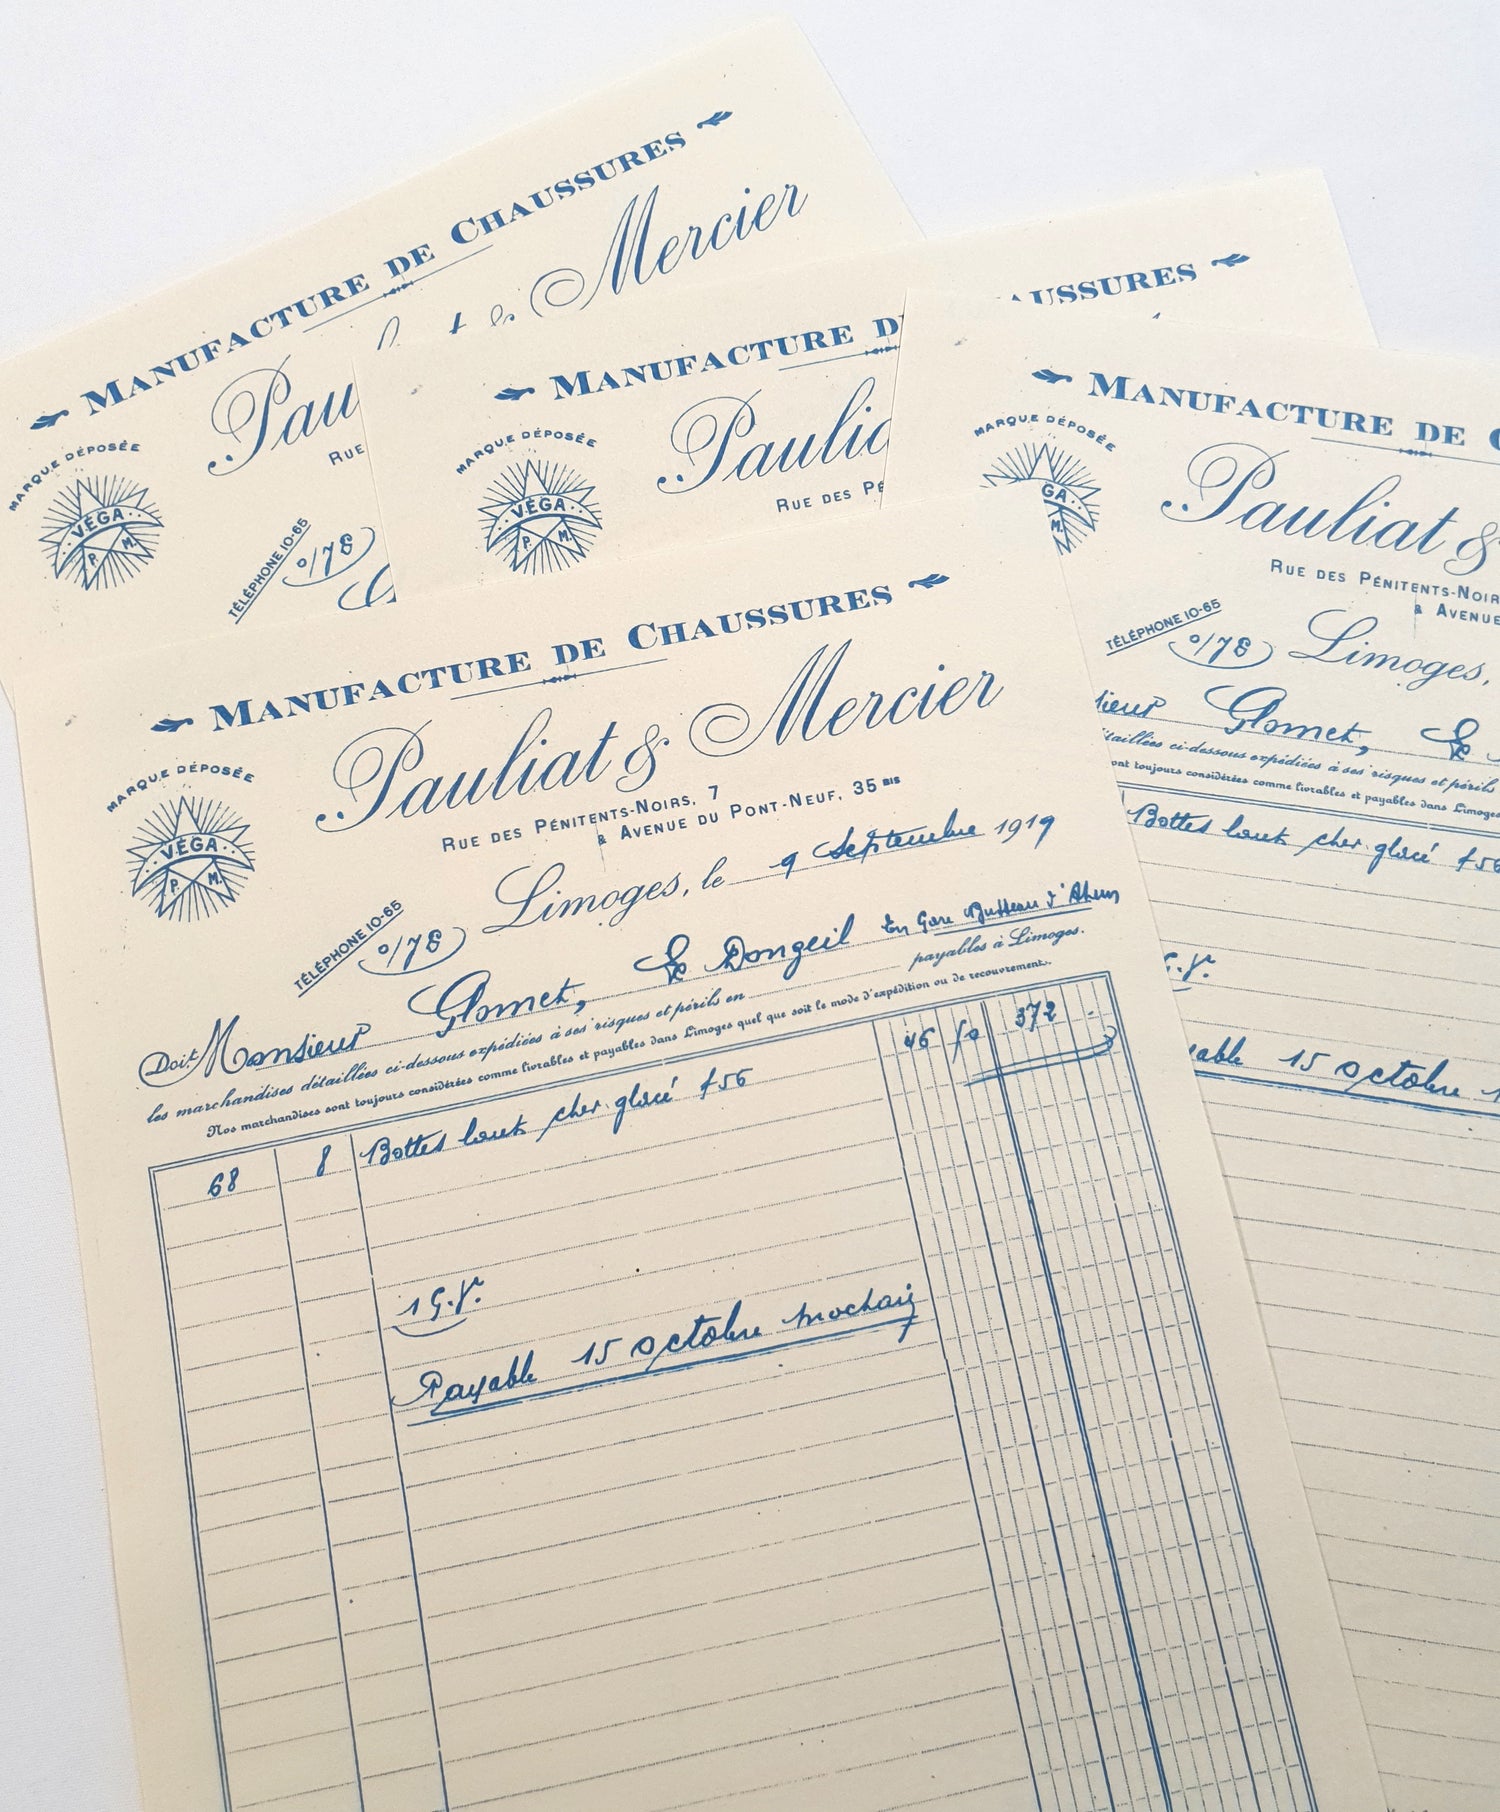 MANUFACTURE DE CHAUSSURES
Mercier
Pau
RUE
MARQUE DÉPOSÉE
VÉGA
P. M.
TÉLÉPHONE 10-65
0/78
AUSSURES
MANUFACTURE D
Paulia
RUE DES PÉ
MARQUE DÉPOSÉE
VÉGA
P. M.
MANUFACTURE DE C
Pauliat &
RUE DES PÉNITENTS-NOIR
& AVENUE
MARQUE DÉPOSÉE
GA
M.
TÉLÉPHONE 10-65
0/78
Limoges,
sieur Glomet,
étaillées ci-dessous expédiées à ses risques et périls
ont toujours considérées comme livrables et payables dans Limoges
Bottes cher glacé f56
yable 15 octobre
MANUFACTURE DE CHAUSSURES
Pauliat & Mercier
RUE DES PÉNITENTS-NOIRS, 7
& AVENUE DU PONT-NEUF, 35 BIS
MARQUE DÉPOSÉE
VÉGA
P. M.
TÉLÉPHONE 10-65
0/78
Limoges, le 9 Septembre 1919
Doit Monsieur Glomet, Le Dongeil En Gare Busseau d'Ahun
les marchandises détaillées ci-dessous expédiées à ses risques et périls en payables à Limoges.
Nos marchandises sont toujours considérées comme livrables et payables dans Limoges quel que soit le mode d'expédition ou de recouvrement.
68 8 Bottes cher glacé f56 46 50 372 -
1 G.V.
Payable 15 octobre prochain